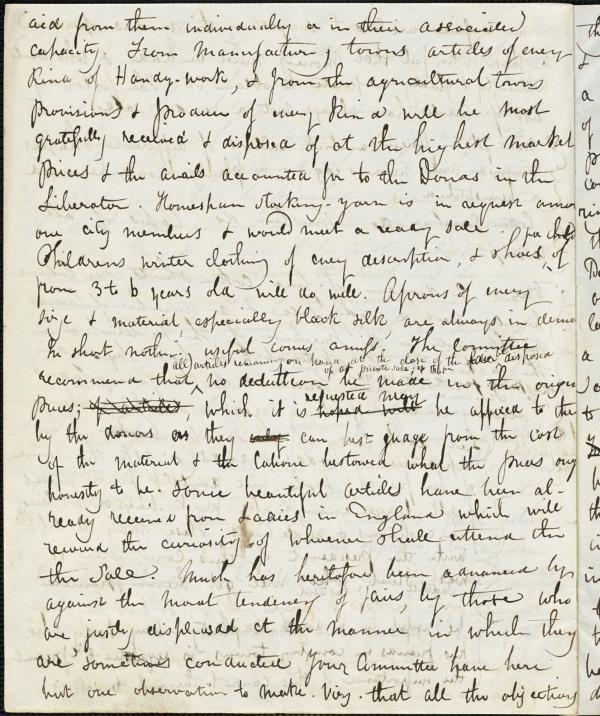 aid from them individually or in their associated
capacity. From manufacturing towns articles of every
kind of Handy-work, & from the agricultural towns
provisions & produce of every kind will be most
gratefully received & disposed of at the highest market
prices & the avails accounted for to the Donors in the
Liberator. Homespun stocking-yarn is in request among
our city members & would meet a ready sale.
for child
Childrens winter clothing of every description, & shoes of
from 3 to 6 years old will do well. Aprons of every
size & material, especially black silk are always in dema
In short nothing useful comes amiss. The committee
all articles remaining on hand at the close of the disposed
of at private sale; & that
recommend that no deduction be made in the origin
prices; of articles which it is hoped will be affixed to the
requested may
by the donors as they can best judge from the cost
of the material & the labour bestowed what the prices ong
honestly to be. Some beautiful articles have been al-
ready received from Ladies in England which will
reward the curiosity of whoever shall attend the
the Sale. Much has heretofore been advanced by
against the moral tendency of fairs, by those who
are justly displeased at the manner in which they
are sometimes conducted Your Committee have here
but one observation to make. Viz. that all the objections